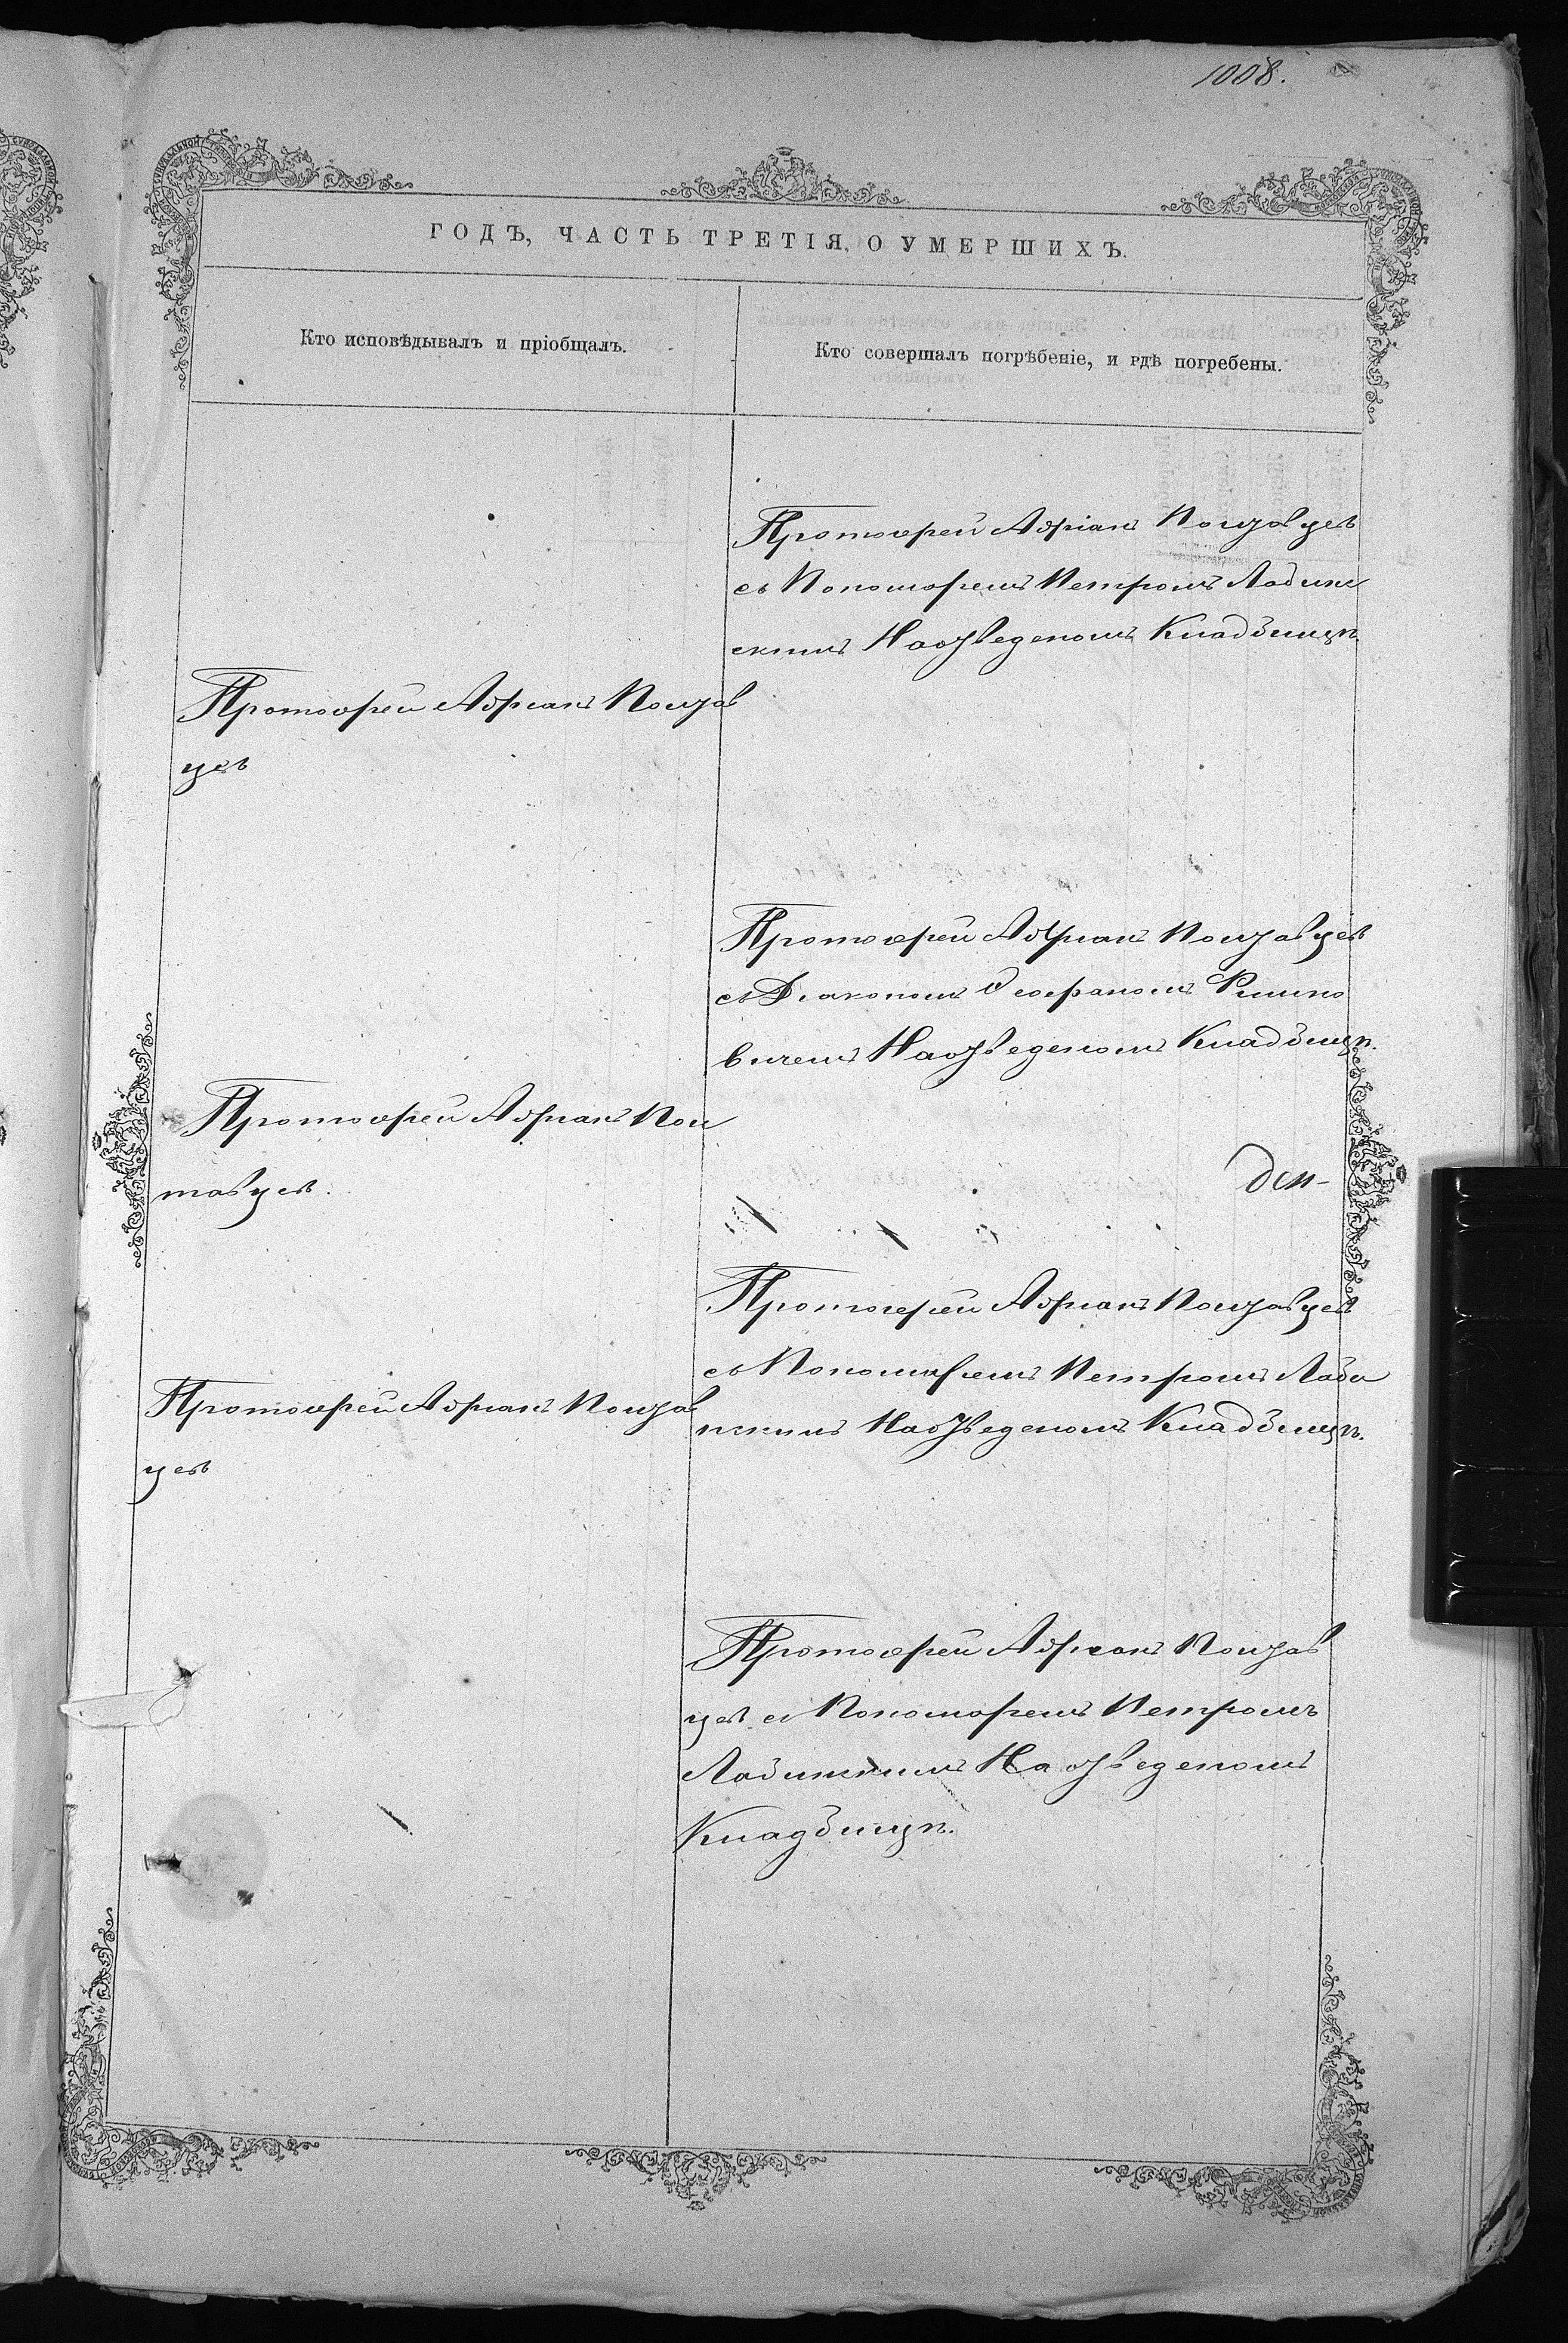 1008.
ГОДЪ, ЧАСТЬ ТРЕТІЯ, О УМЕРШИХЪ.
Кто исповѣдывалъ и пріобщалъ.
Кто совершалъ погрѣбеніе, и гдѣ погребены.
Протоіерей Адріанъ Полтавцев
съ Пономоремъ Петромъ Лабин
скимъ На отведеномъ Кладбищѣ.
Протоіерей Адріанъ Полтав
цев
Протоіерей Адріанъ Полтавцев
съ Діакономъ Ѳеофаномъ
вичемъ На отведеномъ Кладбищѣ.
Протоіерей Адріанъ Пол
тавцев.
Протоіерей Адріанъ Полтавцев
съ Пономаремъ Петромъ Лаби
нскимъ На отведеномъ Кладбищѣ.
Протоіерей Адріанъ Полтав
цев
Протоіерей Адріанъ Полтав
цев съ Пономоремъ Петромъ
Лабинскимъ На отведеномъ
Кладбищѣ.